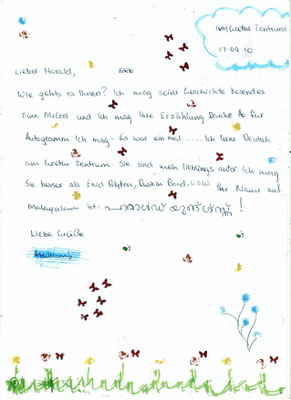 Goethe Zentrum
17.09.10
Lieber Harald,
Wie gehts es Ihnen? Ich mag seine Geschichte besondes
Finn McCool und Ich mag Ihre Erzählung Danke für
Autogramm Ich mag - Es war ein mal...... Ich lerne Deutsch
am Goethe Zentrum. Sie sind mein lieblings autor. Ich mag
Sie besser als Enid Blyton, Ruskin Bond, usw Ihr Name auf
Malayalam ist: !
Liebe Grüße